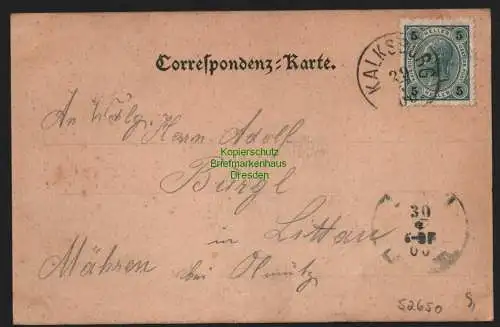 5 HELLER 5
KALKSB
RG
5 5
Correspondenz-Karte.
An
Herrn Adolf
Kopierschutz
Briefmarkenhaus
Dresden
Bürgl
in Littau
30
Mähren bei Olmütz
52650